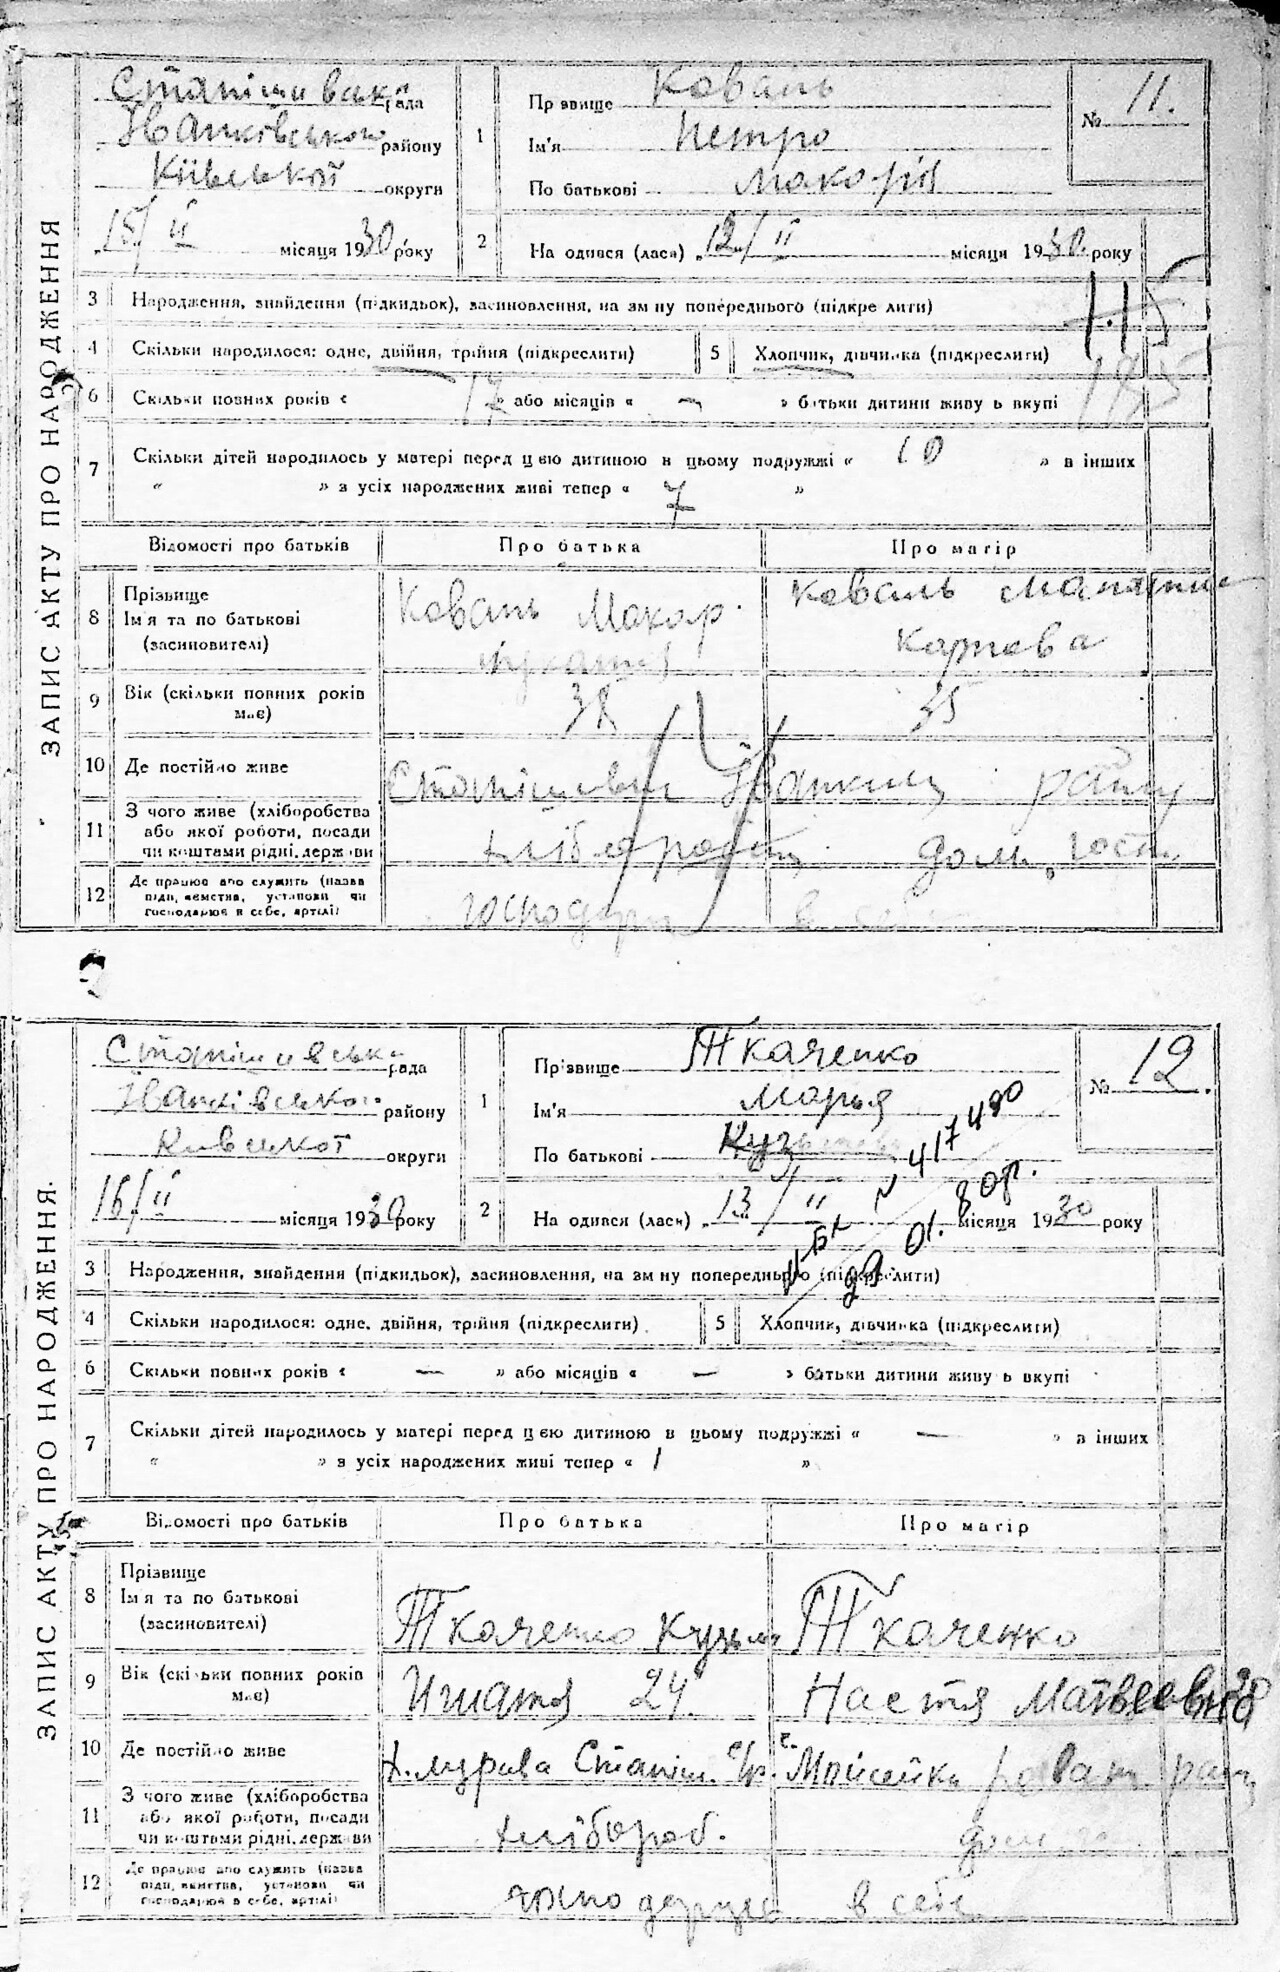 ЗАПИС АКТУ ПРО НАРОДЖЕННЯ
рада
Іванківського району
Київської округи
15/II місяця 1930 року
1 Прізвище Коваль
Ім'я Петро
По батькові Макорів
№ 11.
2 Народився (лася) 12/II місяця 1930 року
3 Народження, знайдення (підкидьок), засиновлення, на зміну попереднього (підкреслити)
4 Скільки народилося: одне, двійня, трійня (підкреслити)
5 Хлопчик, дівчинка (підкреслити)
6 Скільки повних років « 17 » або місяців « — » батьки дитини живуть вкупі
7 Скільки дітей народилось у матері перед цією дитиною в цьому подружжі « 10 » в інших
« » з усіх народжених живі тепер « 7 »
Відомості про батьків Про батька Про матір
8 Прізвище
Ім'я та по батькові
(засиновителі)
Коваль Макар
Коваль
Карпова
9 Вік (скільки повних років має) 38 35
10 Де постійно живе
11 З чого живе (хліборобства
або якої роботи, посади
чи коштами рідні, держави
дом. госп.
12 Де працює або служить (назва
підприємства, установи чи
господарює в себе, артілі)
господарює в себе
ЗАПИС АКТУ ПРО НАРОДЖЕННЯ.
рада
Іванківського району
Київської округи
16/II місяця 1930 року
1 Прізвище Ткаченко
Ім'я Марья
По батькові
№ 12.
N 417490
2 Народився (лася) 13/II місяця 1930 року
3 Народження, знайдення (підкидьок), засиновлення, на зміну попереднього (підкреслити)
4 Скільки народилося: одне, двійня, трійня (підкреслити)
5 Хлопчик, дівчинка (підкреслити)
6 Скільки повних років « — » або місяців « — » батьки дитини живуть вкупі
7 Скільки дітей народилось у матері перед цією дитиною в цьому подружжі « — » в інших
« » з усіх народжених живі тепер « 1 »
Відомості про батьків Про батька Про матір
8 Прізвище
Ім'я та по батькові
(засиновителі)
Ткаченко Кузьма
Ткаченко
9 Вік (скільки повних років має)
24
Настя Матвеевна
10 Де постійно живе
11 З чого живе (хліборобства
або якої роботи, посади
чи коштами рідні, держави
хлібороб.
12 Де працює або служить (назва
підприємства, установи чи
господарює в себе, артілі)
господарює в себе